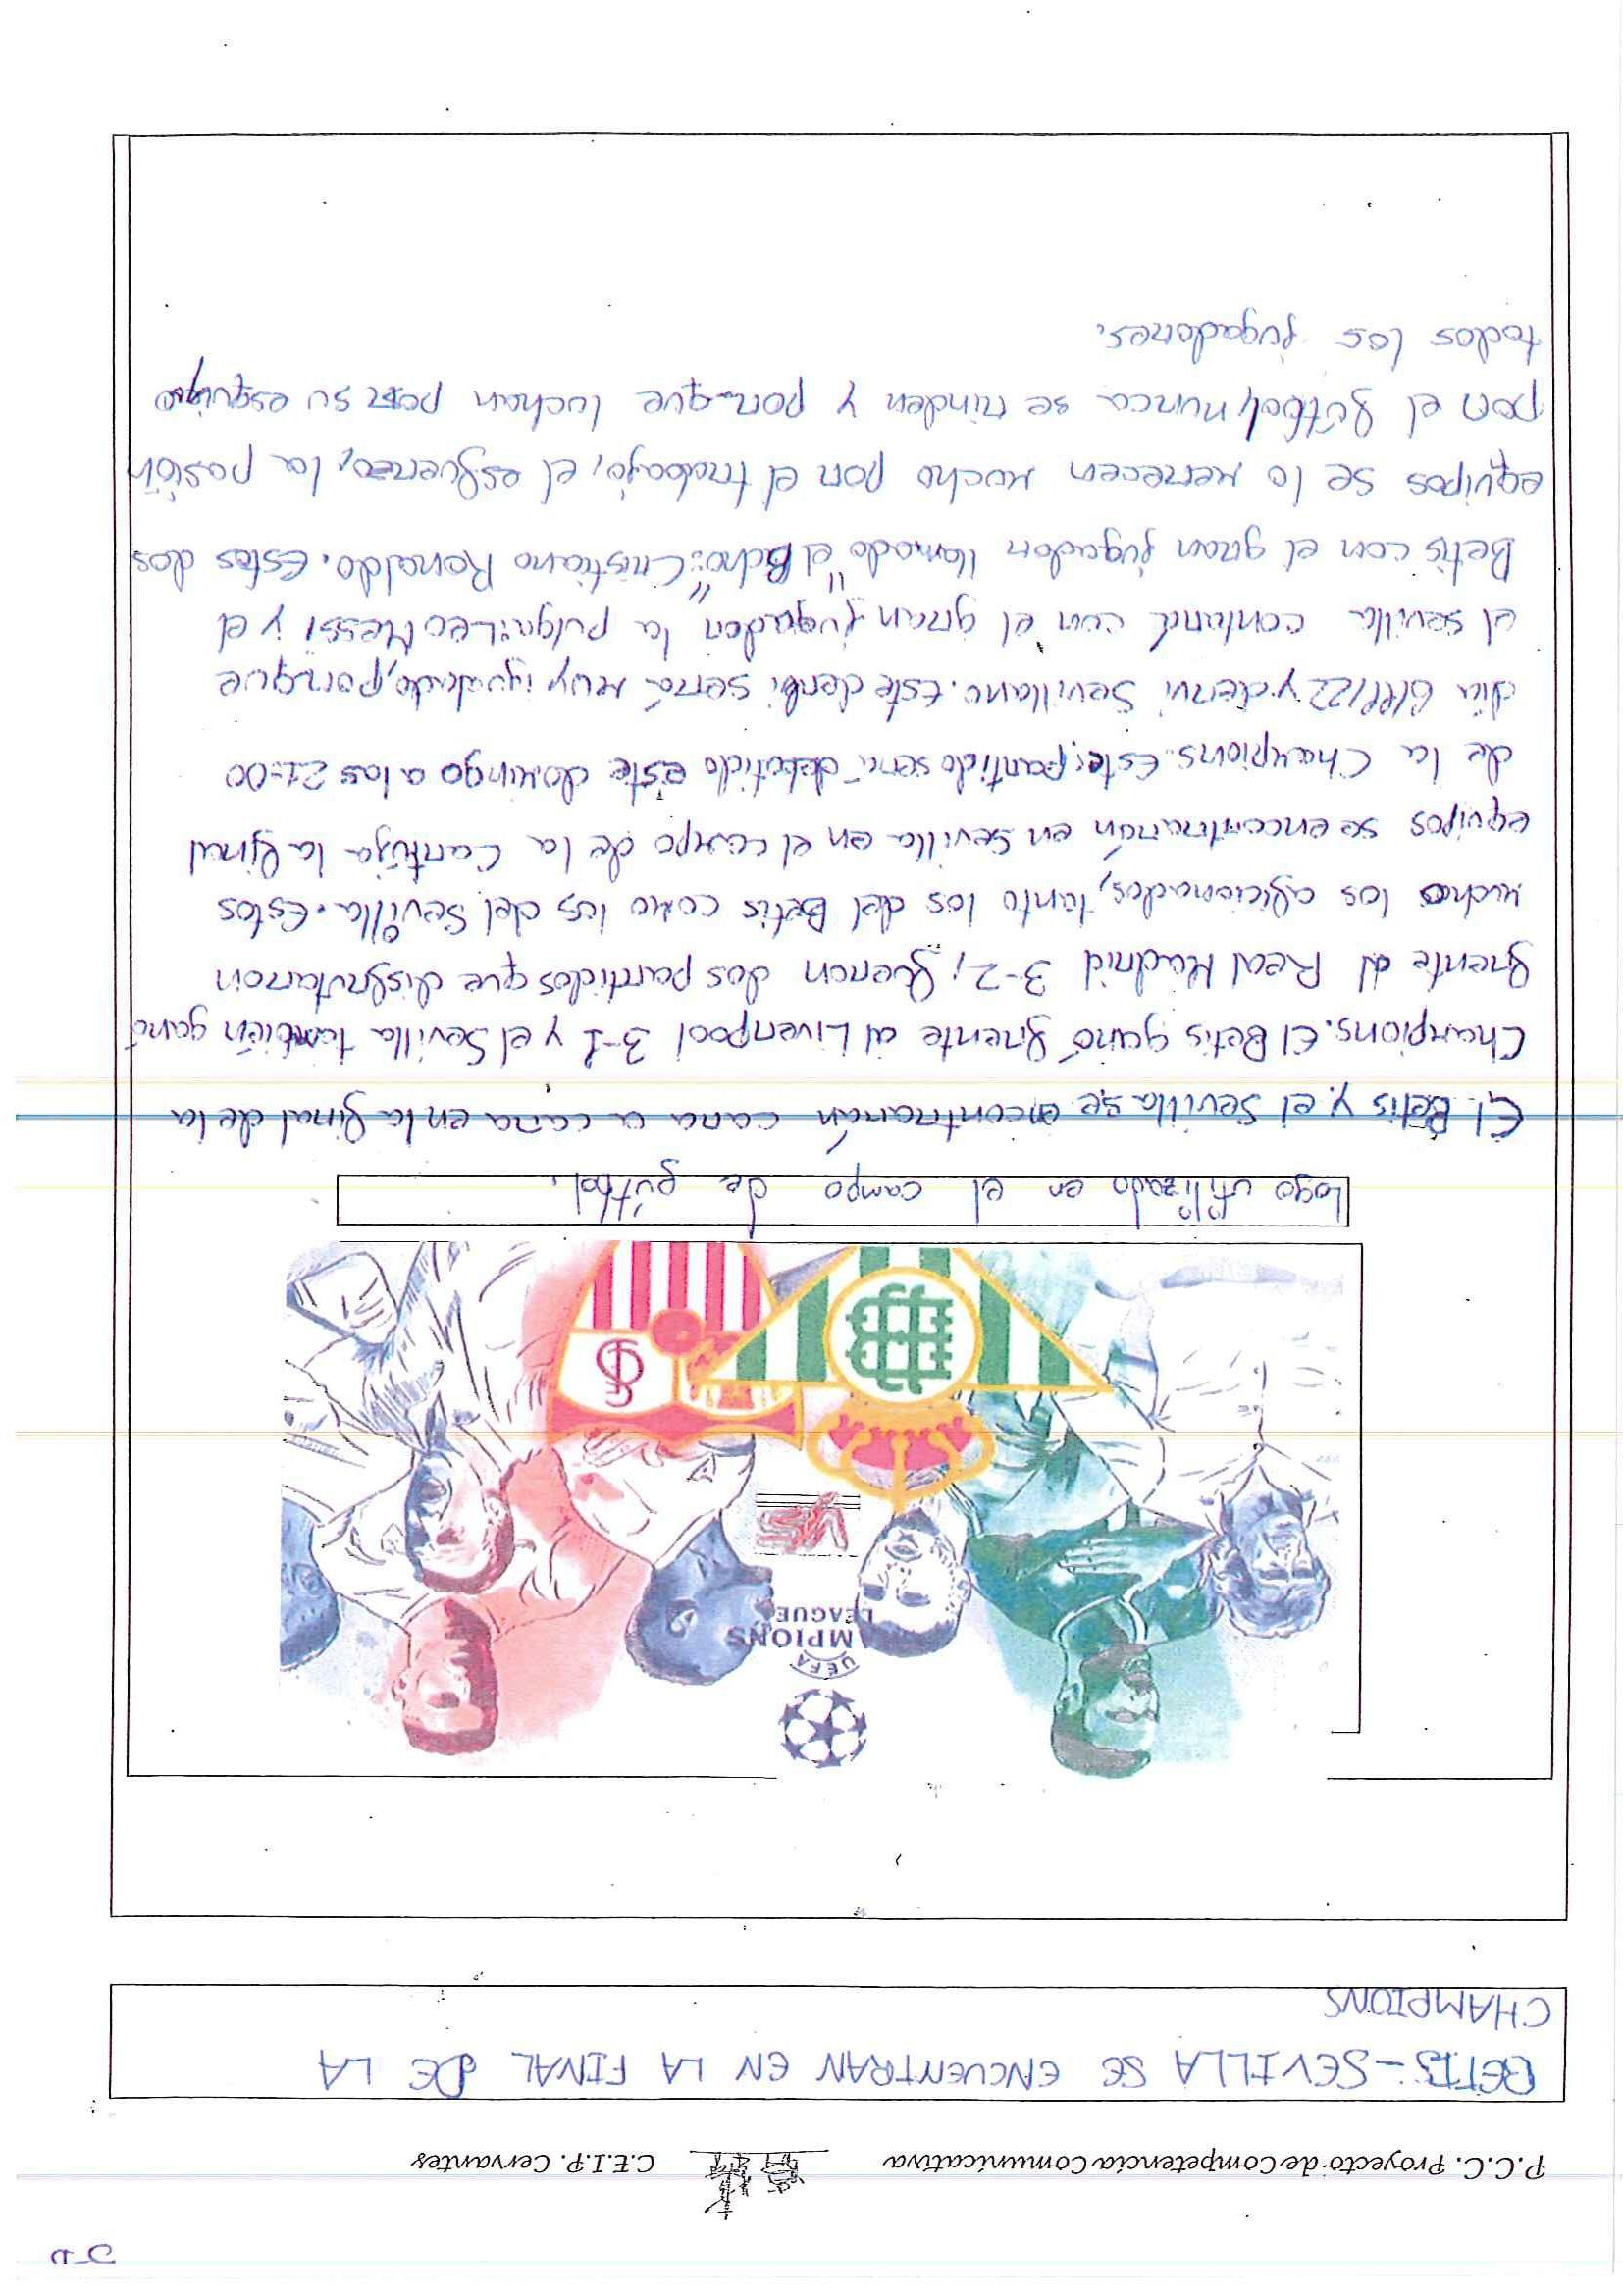 P.C.C. Proyecto de Competencia Comunicativa C.E.I.P. Cervantes
BETIS-SEVILLA SE ENCUENTRAN EN LA FINAL DE LA
CHAMPIONS
UEFA
AMPIONS
LEAGUE
VS
Logo utilizado en el campo de fútbol.
El Betis y el Sevilla se encontrarán cara a cara en la final de la
Champions. El Betis ganó frente al Liverpool 3-1 y el Sevilla también ganó
frente al Real Madrid 3-2, fueron dos partidos que disfrutaron
mucho los aficionados, tanto los del Betis como los del Sevilla. Estos
equipos se encontrarán en Sevilla en el campo de la Cartuja la final
de la Champions. Este partido será debatido este domingo a las 21:00
día 6/11/22 y derbi Sevillano. Este derbi será muy igualado, porque
el Sevilla contará con el gran jugador "la pulga: Leo Messi" y el
Betis con el gran jugador llamado "el Bicho: Cristiano Ronaldo. Estos dos
equipos se lo merecen mucho por el trabajo, el esfuerzo, la pasión
por el fútbol, nunca se rinden y por que luchan por su equipo
todos los jugadores.